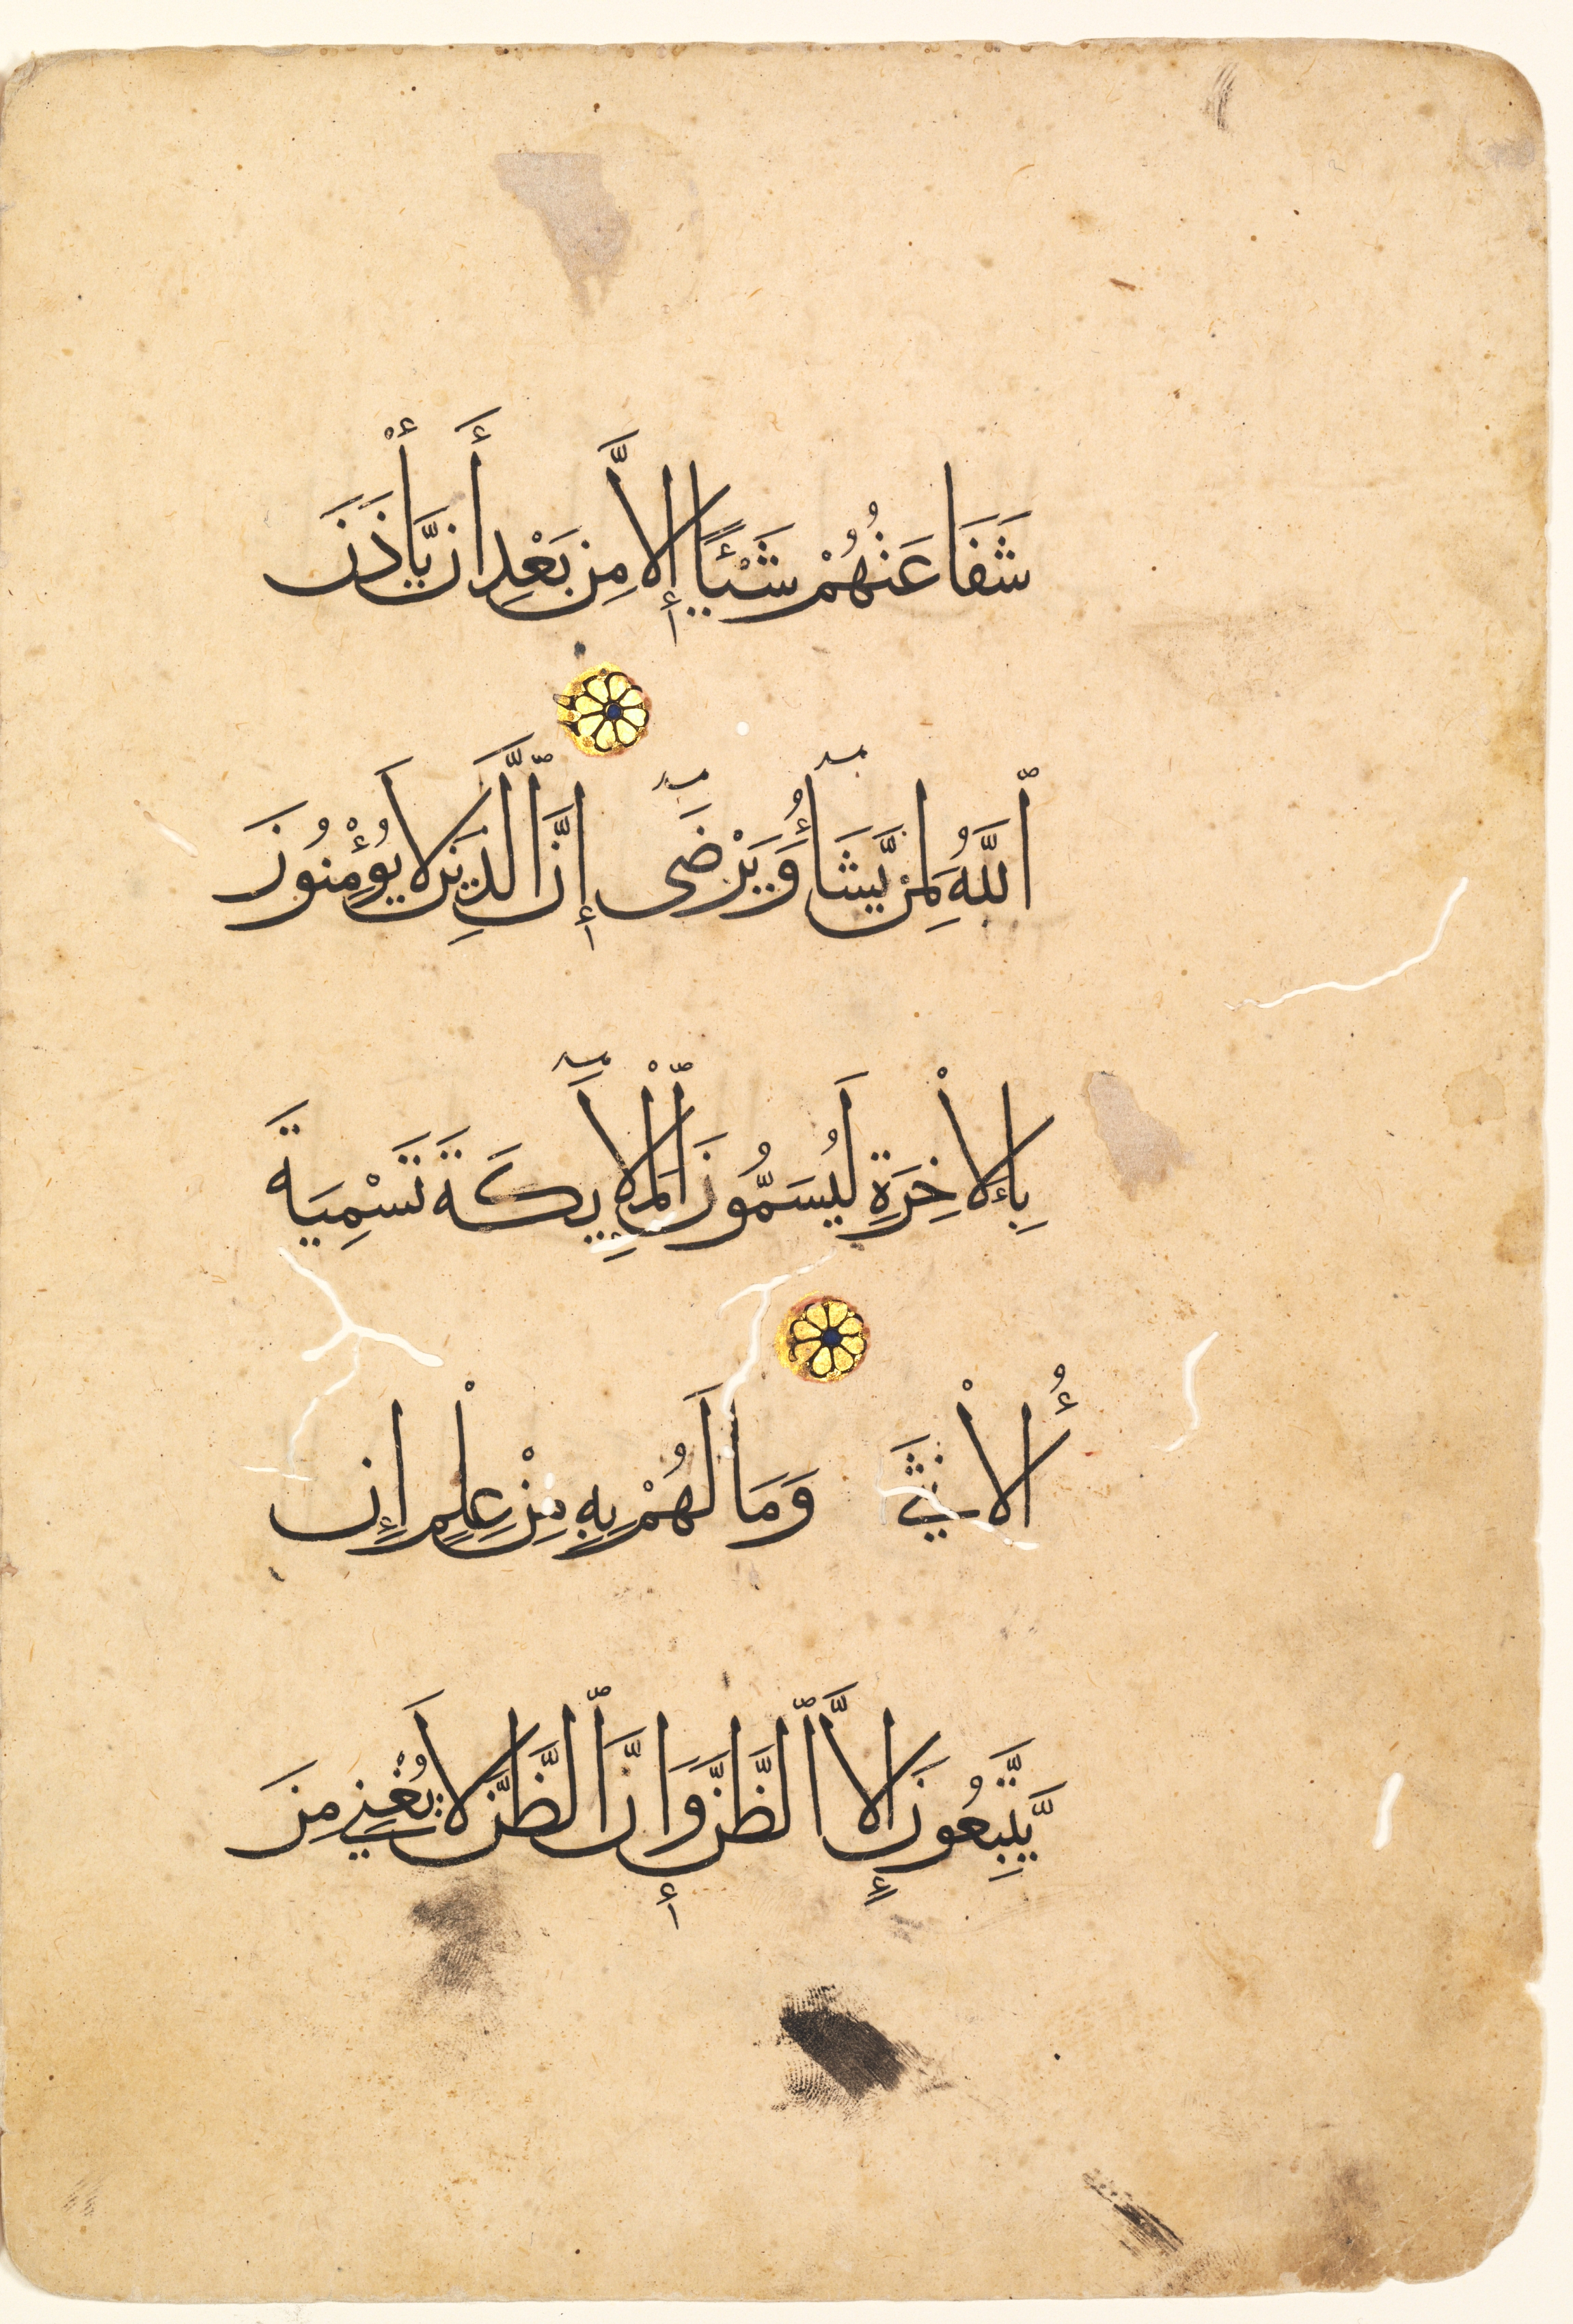 شَفَاعَتُهُمْ شَيْـًٔا إِلَّا مِنۢ بَعْدِ أَن يَّأْذَنَ
ٱللَّهُ لِمَن يَّشَآءُ وَيَرْضَىٰٓ إِنَّ ٱلَّذِينَ لَا يُؤْمِنُونَ
بِالْأٓخِرَةِ لَيُسَمُّونَ ٱلْمَلَآيِٕكَةَ تَسْمِيَةَ
الْأُنْثَىٰ وَمَا لَهُمْ بِهِ مِنْ عِلْمٍ إِن
يَّتَّبِعُونَ إِلَّا ٱلظَّنَّ وَإِنَّ ٱلظَّنَّ لَا يُغْنِي مِنَ